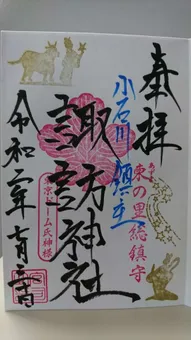 奉拝
小石川鎮主
東の里総鎮守
諏訪神社
京ドーム氏神様
令和二年七月三日